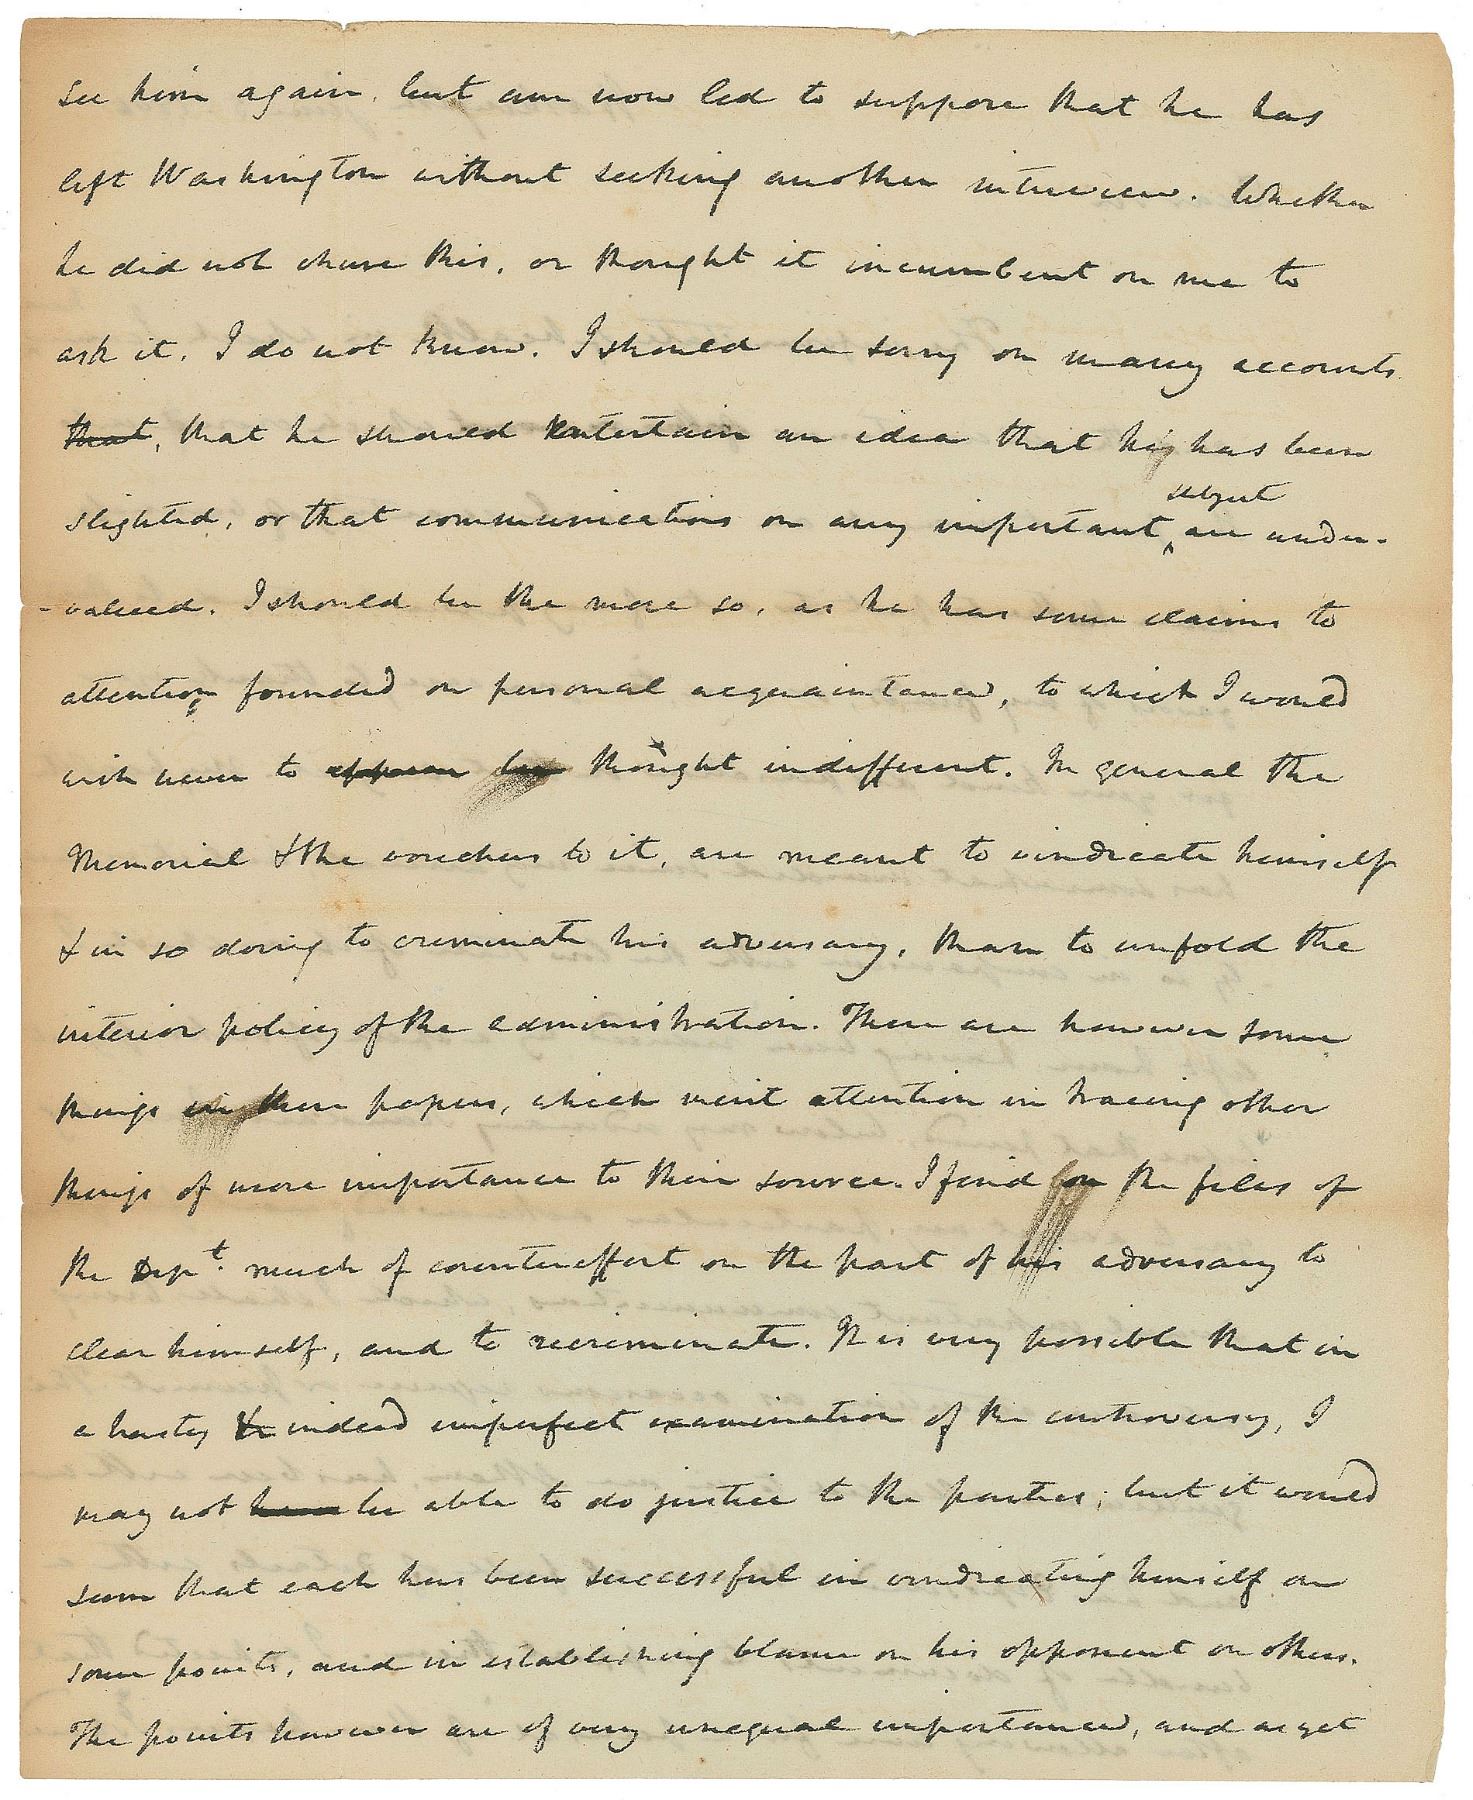 see him again, but am now led to suppose that he has
left Washington without seeking another interview. Whether
he did not chuse this, or thought it incumbent on me to
ask it, I do not know. I should be sorry on many accounts
that, that he should entertain an idea that he has been
slighted, or that communications on any important subject are under-
-valued. I should be the more so, as he has some claims to
attention, founded on personal acquaintance, to which I would
wish never to appear be thought indifferent. In general the
Memorial & the vouchers to it, are meant to vindicate himself
& in so doing to criminate his adversary, than to unfold the
interior policy of the administration. There are however some
things in these papers, which merit attention in tracing other
things of more importance to their source. I find on the files of
the Dept. much of counter effort on the part of his adversary to
clear himself, and to recriminate. It is very possible that in
a hasty & indeed imperfect examination of the controversy, I
may not have be able to do justice to the parties; but it would
seem that each has been successful in vindicating himself on
some points, and in establishing blame on his opponent on others.
The points however are of very unequal importance, and as yet